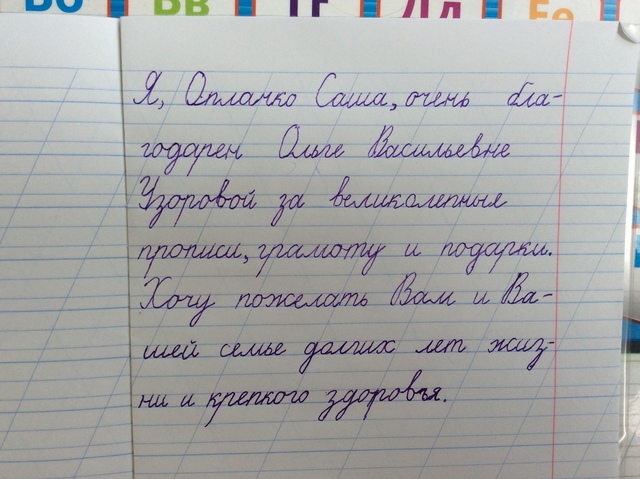 Бб Вв Гг Дд Ее
Я, Оплачко Саша, очень бла-
годарен Ольге Васильевне
Узоровой за великолепные
прописи, грамоту и подарки.
Хочу пожелать Вам и Ва-
шей семье долгих лет жиз-
ни и крепкого здоровья.